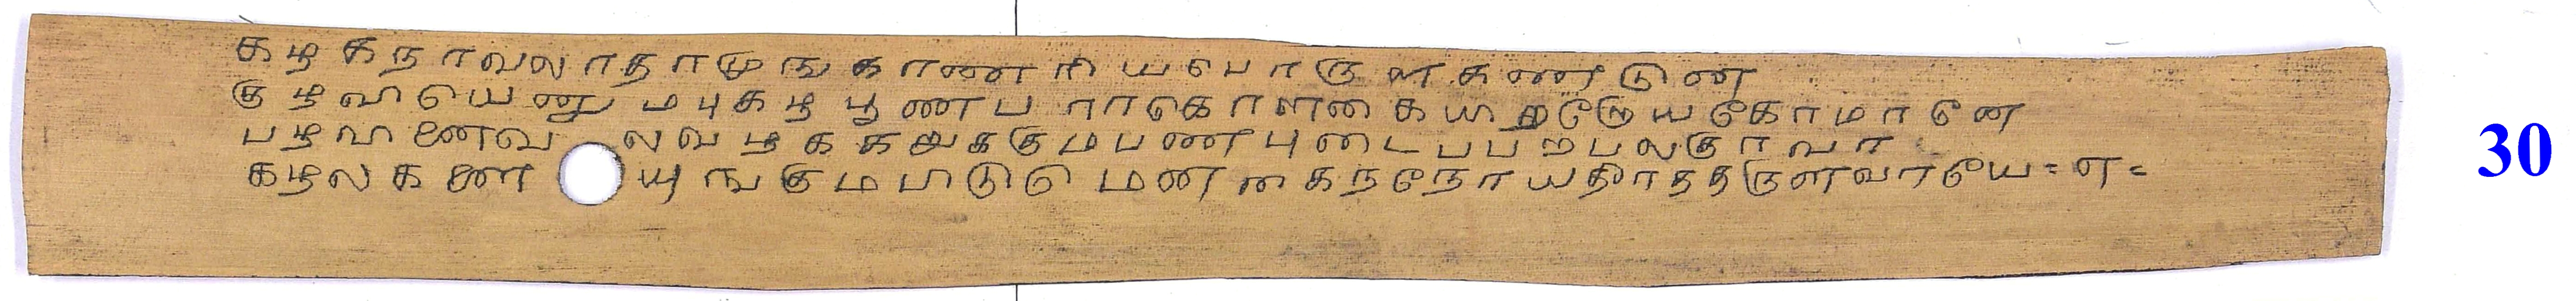 கழகநாவலாதாமுஙகாணரியபொருளகணடுன
குழவியெனுமபுகழபூணபராகொளகையிறறேயகோமானே
பழவினைவலவழககறுககுமபணபுடைபபறபலகுரவா
கழலகணயுஙகுமபிடுமெனகைநநோயதீாததருளவாயே = எ =
30